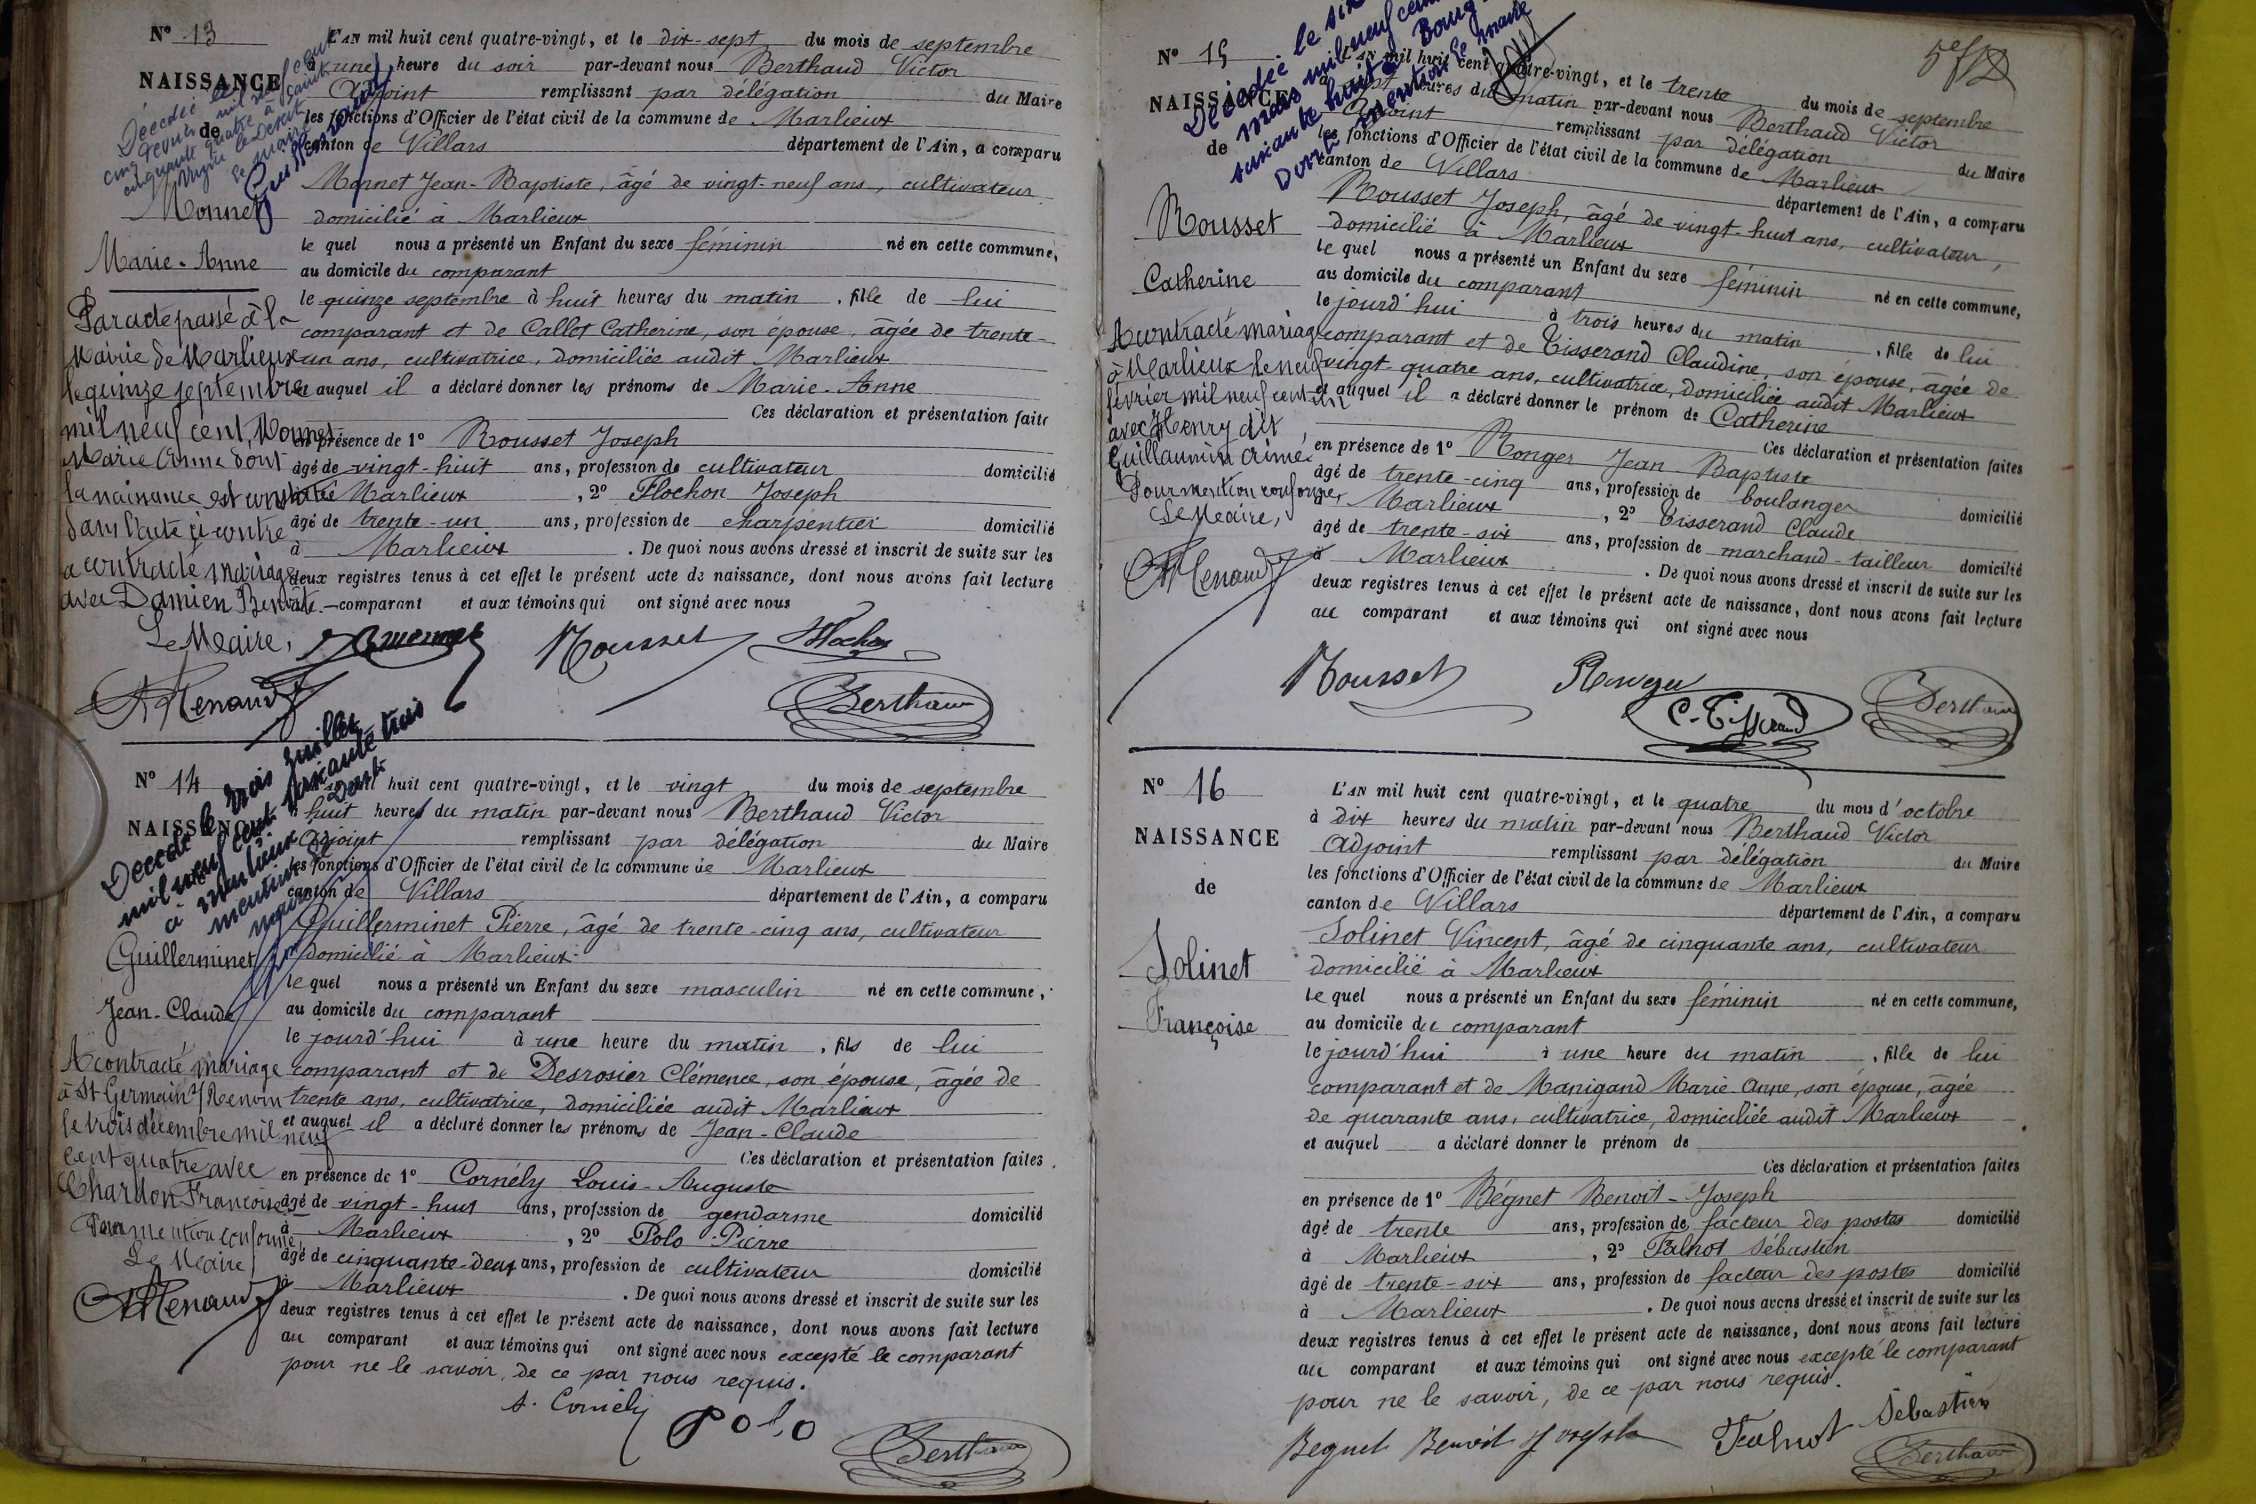 Nº 13
NAISSANCE
de
Monnet
Marie-Anne
Décédée le
cinq février mil neuf cent
cinquante quatre à Saint
Le Maire
L'AN mil huit cent quatre-vingt, et le dix-sept du mois de septembre
à une heure du soir par-devant nous Berthaud Victor
Adjoint remplissant par délégation du Maire
les fonctions d'Officier de l'état civil de la commune de Marlieux
canton de Villars département de l'Ain, a comparu
Monnet Jean-Baptiste, âgé de vingt-neuf ans, cultivateur
domicilié à Marlieux
le quel nous a présenté un Enfant du sexe féminin né en cette commune,
au domicile du comparant
le quinze septembre à huit heures du matin, fille de lui
comparant et de Callot Catherine, son épouse, âgée de trente-
un ans, cultivatrice, domiciliée audit Marlieux
et auquel il a déclaré donner les prénoms de Marie-Anne
Ces déclaration et présentation faites
en présence de 1º Rousset Joseph
âgé de vingt-huit ans, profession de cultivateur domicilié
à Marlieux, 2º Flochon Joseph
âgé de trente-un ans, profession de charpentier domicilié
à Marlieux. De quoi nous avons dressé et inscrit de suite sur les
deux registres tenus à cet effet le présent acte de naissance, dont nous avons fait lecture
au comparant et aux témoins qui ont signé avec nous
Par acte passé à la
Mairie de Marlieux
le quinze septembre
mil neuf cent, Monnet
Marie Anne dont
la naissance est constatée
dans l'acte ci-contre
a contracté mariage
avec Damien Benoît
Le Maire,
A Renaud
Rousset Flochon
Berthaud
Nº 14
NAISSANCE
Guillerminet
Jean-Claude
Décédé le trois juillet
mil neuf cent soixante trois
à Marlieux Dont
mention
maire
L'AN mil huit cent quatre-vingt, et le vingt du mois de septembre
à huit heures du matin par-devant nous Berthaud Victor
Adjoint remplissant par délégation du Maire
les fonctions d'Officier de l'état civil de la commune de Marlieux
canton de Villars département de l'Ain, a comparu
Guillerminet Pierre, âgé de trente-cinq ans, cultivateur
domicilié à Marlieux
le quel nous a présenté un Enfant du sexe masculin né en cette commune,
au domicile du comparant
le jourd'hui à une heure du matin, fils de lui
comparant et de Desrosier Clémence, son épouse, âgée de
trente ans, cultivatrice, domiciliée audit Marlieux
et auquel il a déclaré donner les prénoms de Jean-Claude
Ces déclaration et présentation faites
en présence de 1º Cornély Louis-Auguste
âgé de vingt-huit ans, profession de gendarme domicilié
à Marlieux, 2º Polo Pierre
âgé de cinquante-deux ans, profession de cultivateur domicilié
à Marlieux. De quoi nous avons dressé et inscrit de suite sur les
deux registres tenus à cet effet le présent acte de naissance, dont nous avons fait lecture
au comparant et aux témoins qui ont signé avec nous excepté le comparant
pour ne le savoir, de ce par nous requis.
A contracté mariage
à St Germain s/ Renom
le trois décembre mil neuf
cent quatre avec
Chardon Françoise
Pour mention conforme,
Le Maire
A Renaud
A. Cornély Polo
Berthaud
5e f 12
Nº 15
NAISSANCE
de
Rousset
Catherine
Décédée le six
mars mil neuf cent
soixante huit à Bourg
Dont mention Le Maire
L'AN mil huit cent quatre-vingt, et le trente du mois de septembre
à sept heures du matin par-devant nous Berthaud Victor
Adjoint remplissant par délégation du Maire
les fonctions d'Officier de l'état civil de la commune de Marlieux
canton de Villars département de l'Ain, a comparu
Rousset Joseph, âgé de vingt-huit ans, cultivateur,
domicilié à Marlieux
le quel nous a présenté un Enfant du sexe féminin né en cette commune,
au domicile du comparant
le jourd'hui à trois heures du matin, fille de lui
comparant et de Tisserand Claudine, son épouse, âgée de
vingt-quatre ans, cultivatrice, domiciliée audit Marlieux
et auquel il a déclaré donner le prénom de Catherine
Ces déclaration et présentation faites
en présence de 1º Ronger Jean-Baptiste
âgé de trente-cinq ans, profession de boulanger domicilié
à Marlieux, 2º Tisserand Claude
âgé de trente-six ans, profession de marchand-tailleur domicilié
à Marlieux. De quoi nous avons dressé et inscrit de suite sur les
deux registres tenus à cet effet le présent acte de naissance, dont nous avons fait lecture
au comparant et aux témoins qui ont signé avec nous
A contracté mariage
à Marlieux le neuf
février mil neuf cent un
avec Henry dit
Guillaumin
Pour mention conforme,
Le Maire,
A Renaud
Rousset Ronger
C. Tisserand Berthaud
Nº 16
NAISSANCE
de
Solinet
Françoise
L'AN mil huit cent quatre-vingt, et le quatre du mois d'octobre
à dix heures du matin par-devant nous Berthaud Victor
Adjoint remplissant par délégation du Maire
les fonctions d'Officier de l'état civil de la commune de Marlieux
canton de Villars département de l'Ain, a comparu
Solinet Vincent, âgé de cinquante ans, cultivateur
domicilié à Marlieux
le quel nous a présenté un Enfant du sexe féminin né en cette commune,
au domicile du comparant
le jourd'hui à une heure du matin, fille de lui
comparant et de Manigand Marie Anne, son épouse, âgée
de quarante ans, cultivatrice, domiciliée audit Marlieux
et auquel a déclaré donner le prénom de
Ces déclaration et présentation faites
en présence de 1º Bégnet Benoît-Joseph
âgé de trente ans, profession de facteur des postes domicilié
à Marlieux, 2º Falnot Sébastien
âgé de trente-six ans, profession de facteur des postes domicilié
à Marlieux. De quoi nous avons dressé et inscrit de suite sur les
deux registres tenus à cet effet le présent acte de naissance, dont nous avons fait lecture
au comparant et aux témoins qui ont signé avec nous excepté le comparant
pour ne le savoir, de ce par nous requis.
Begnet Benoit Joseph Falnot Sébastien
Berthaud